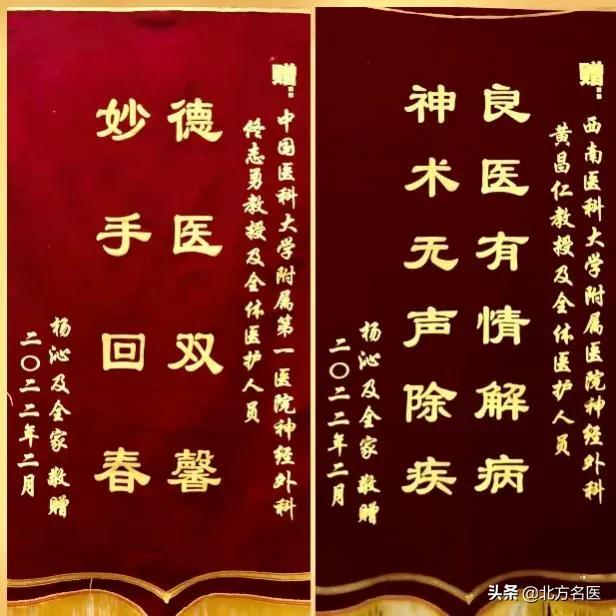 赠:
中国医科大学附属第一医院神经外科
佟志勇教授及全体医护人员
德医双馨
妙手回春
杨沁及全家 敬赠
二〇二二年二月
赠:
西南医科大学附属医院神经外科
黄昌仁教授及全体医护人员
良医有情解病
神术无声除疾
杨沁及全家 敬赠
二〇二二年二月
头条 @北方名医